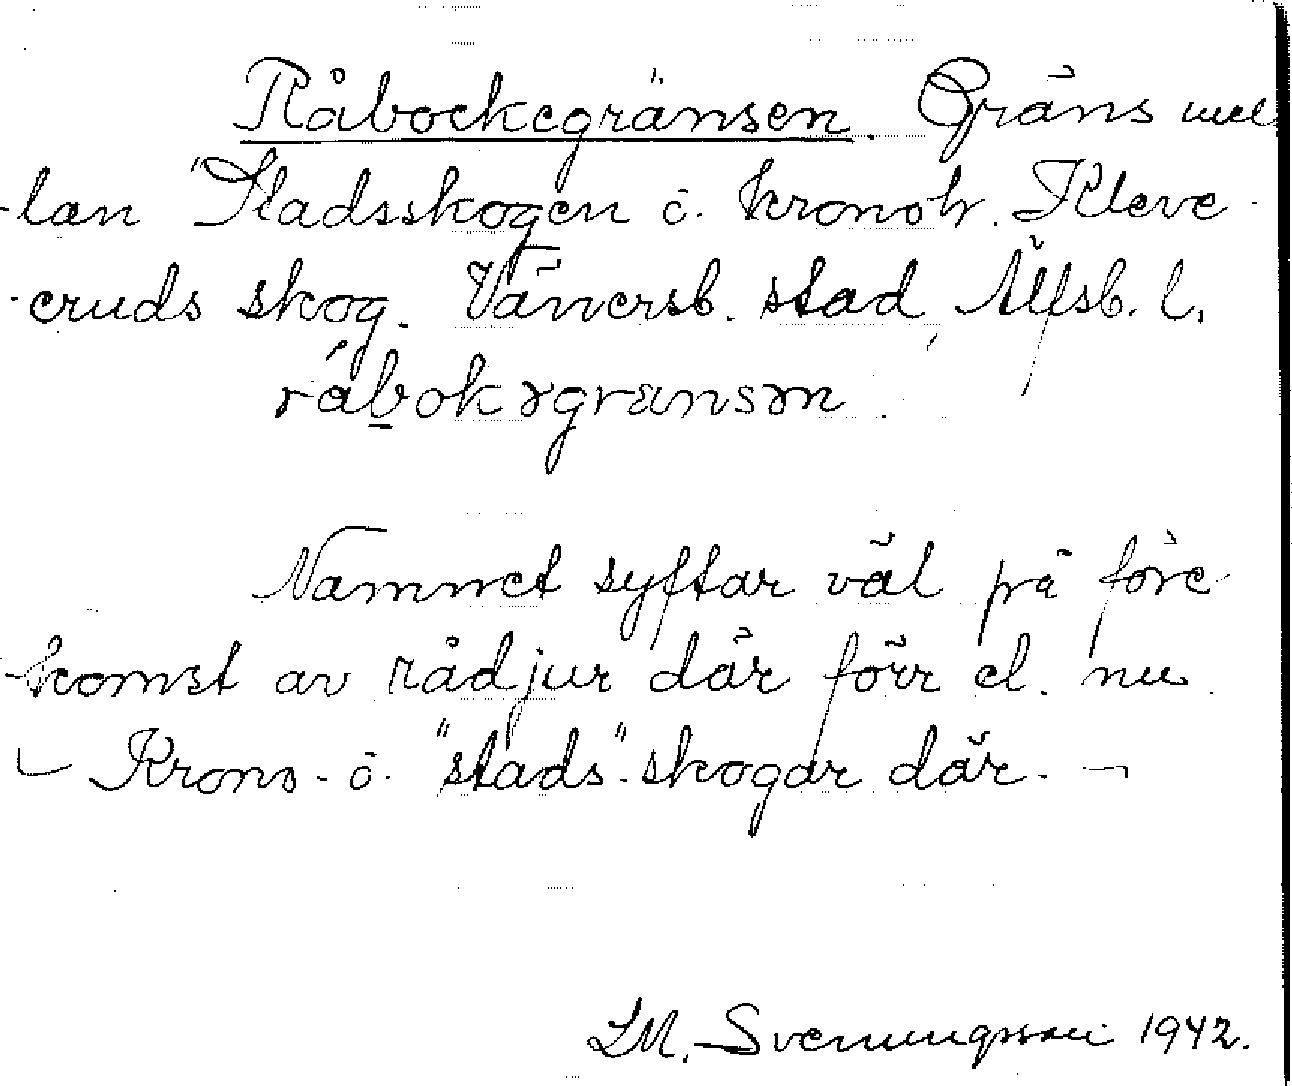 Råbockegränsen. Gräns mel
-lan "Stadsskogen o. kronoh. Kleve-
-eruds skog. Vänersb. stad, Älfsb. l.
råbokəgränsən.
Namnet syftar väl på före
-komst av rådjur där förr el. nu.
Krono- o. "stads"-skogar där. ¬
LM. Svenungsson 1942.